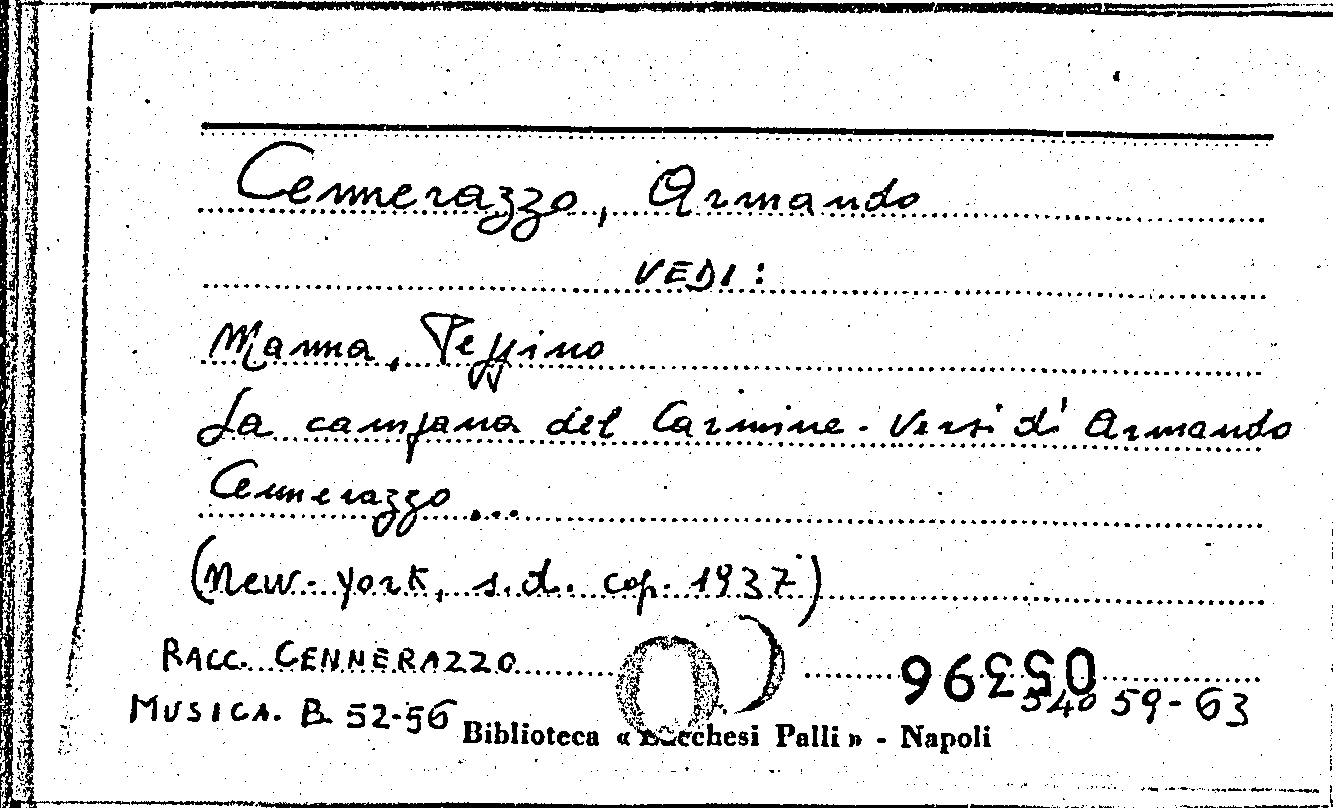 Cennerazzo, Armando
VEDI:
Manna, Peppino
La campana del Carmine. Versi di Armando
Cennerazzo ...
(New-York, s.d. cop. 1937)
RACC. CENNERAZZO 05396
MUSICA. B. 52-56 540 59-63
Biblioteca « Lucchesi Palli » - Napoli